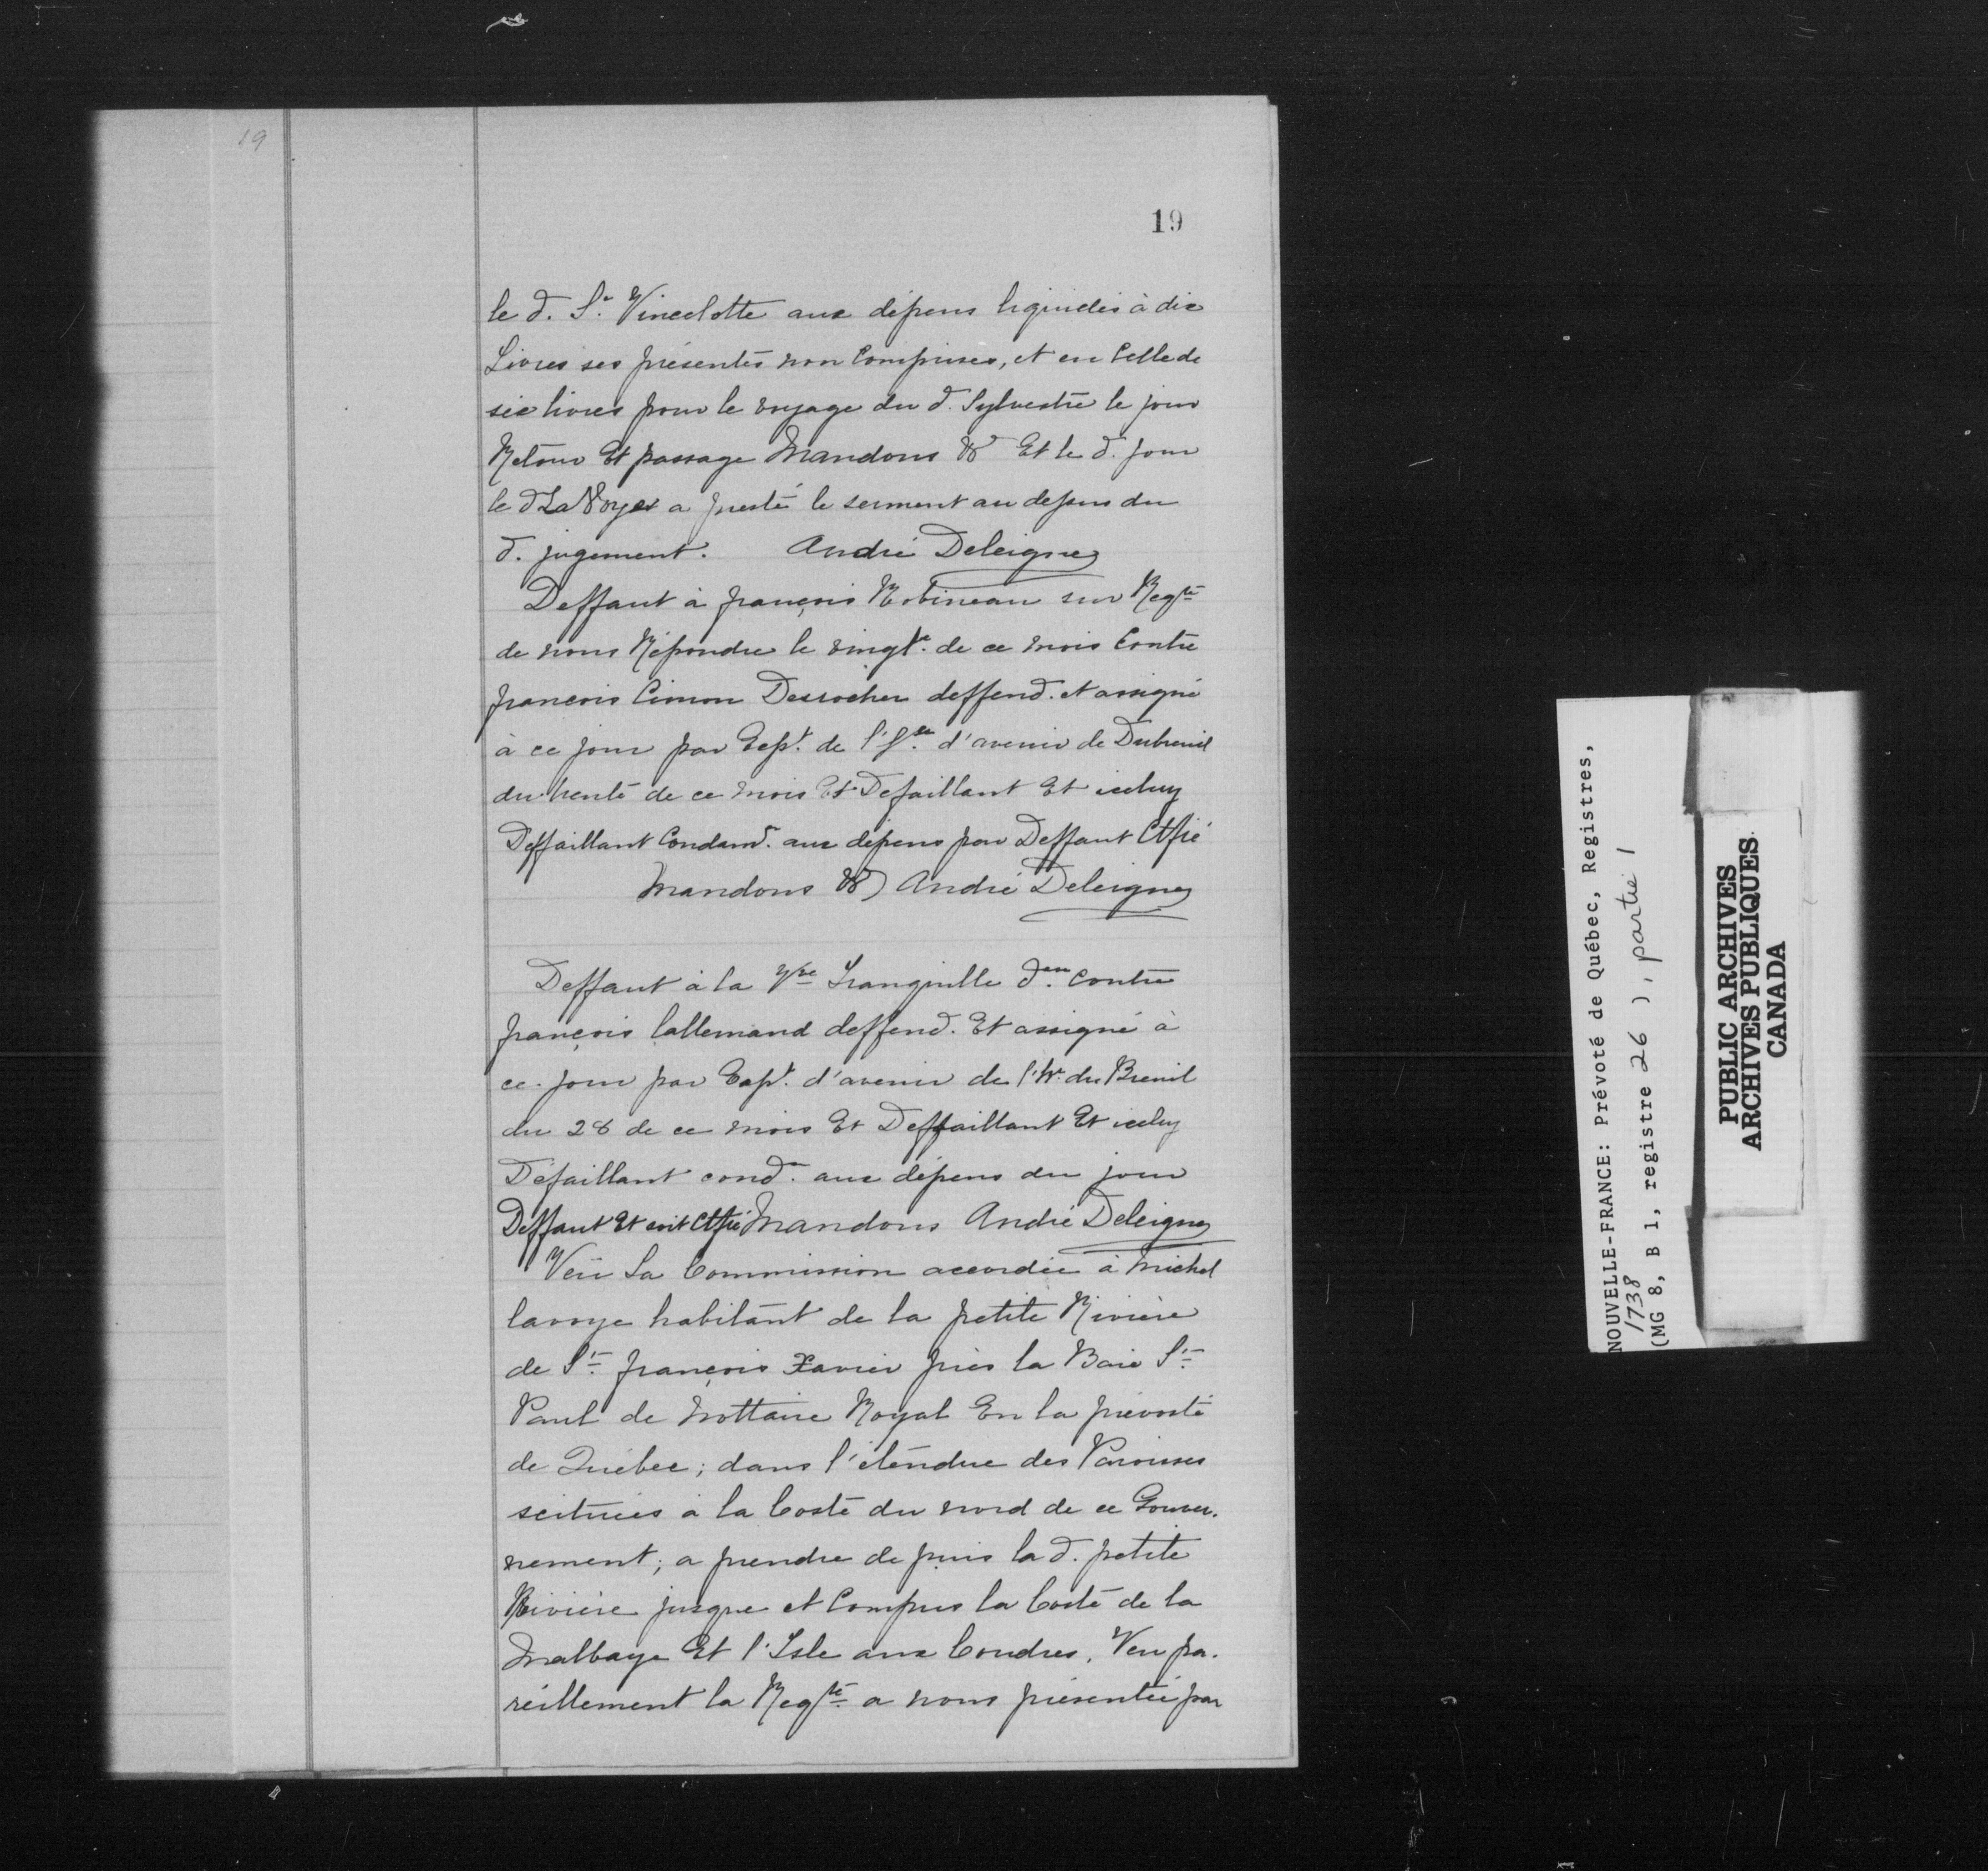 19
19
le d. Sr. Vincelotte aux dépens liquidés à dix
Livres ses présentés non Comprises, et en Celle de
six livres pour le voyage du d. Sylvestre le jour
Retour Et passage Mandons &ca Et le d. jour
le d LaVoye a presté le serment au desir du
d. jugement. André Deleigne
Deffaut à françois Robineau sur Reqte
de nous Répondre le vingte. de ce mois Contre
françois Cimon Desrocher deffend. et assigné
à ce jour par Expt. de l' d'avenir de Dubreuil
du trente de ce mois Et Defaillant Et iceluy
Deffaillant Condamd. aux dépens pour Deffaut
Mandons &ca André Deleigne
Deffaut à la Vve Tranquille den. contre
françois lallemand deffend. Et assigné à
ce jour par Expt. d'avenir de l'hr. du Breuil
du 28 de ce mois Et Deffaillant Et iceluy
Défaillant cond. aux dépens du jour
Deffaut Et soit Mandons André Deleigne
Veu La Commission accordée à Michel
lavoye habitant de la petite Rivière
de St. françois Xavier près la Baie St.
Paul de Nottaire Royal En la prévosté
de Québec; dans l'étendue des Paroisses
scituées à la Coste du nord de ce Gouver.
nement; a prendre depuis la d. petite
Rivière jusque et Compris la Coste de la
Malbaye Et l'Isle aux Coudres, Veu pa.
reillement la Reqte a nous présentée par
NOUVELLE-FRANCE: Prévoté de Québec, Registres,
1738
(MG 8, B 1, registre 26 ), partie 1
PUBLIC ARCHIVES
ARCHIVES PUBLIQUES
CANADA